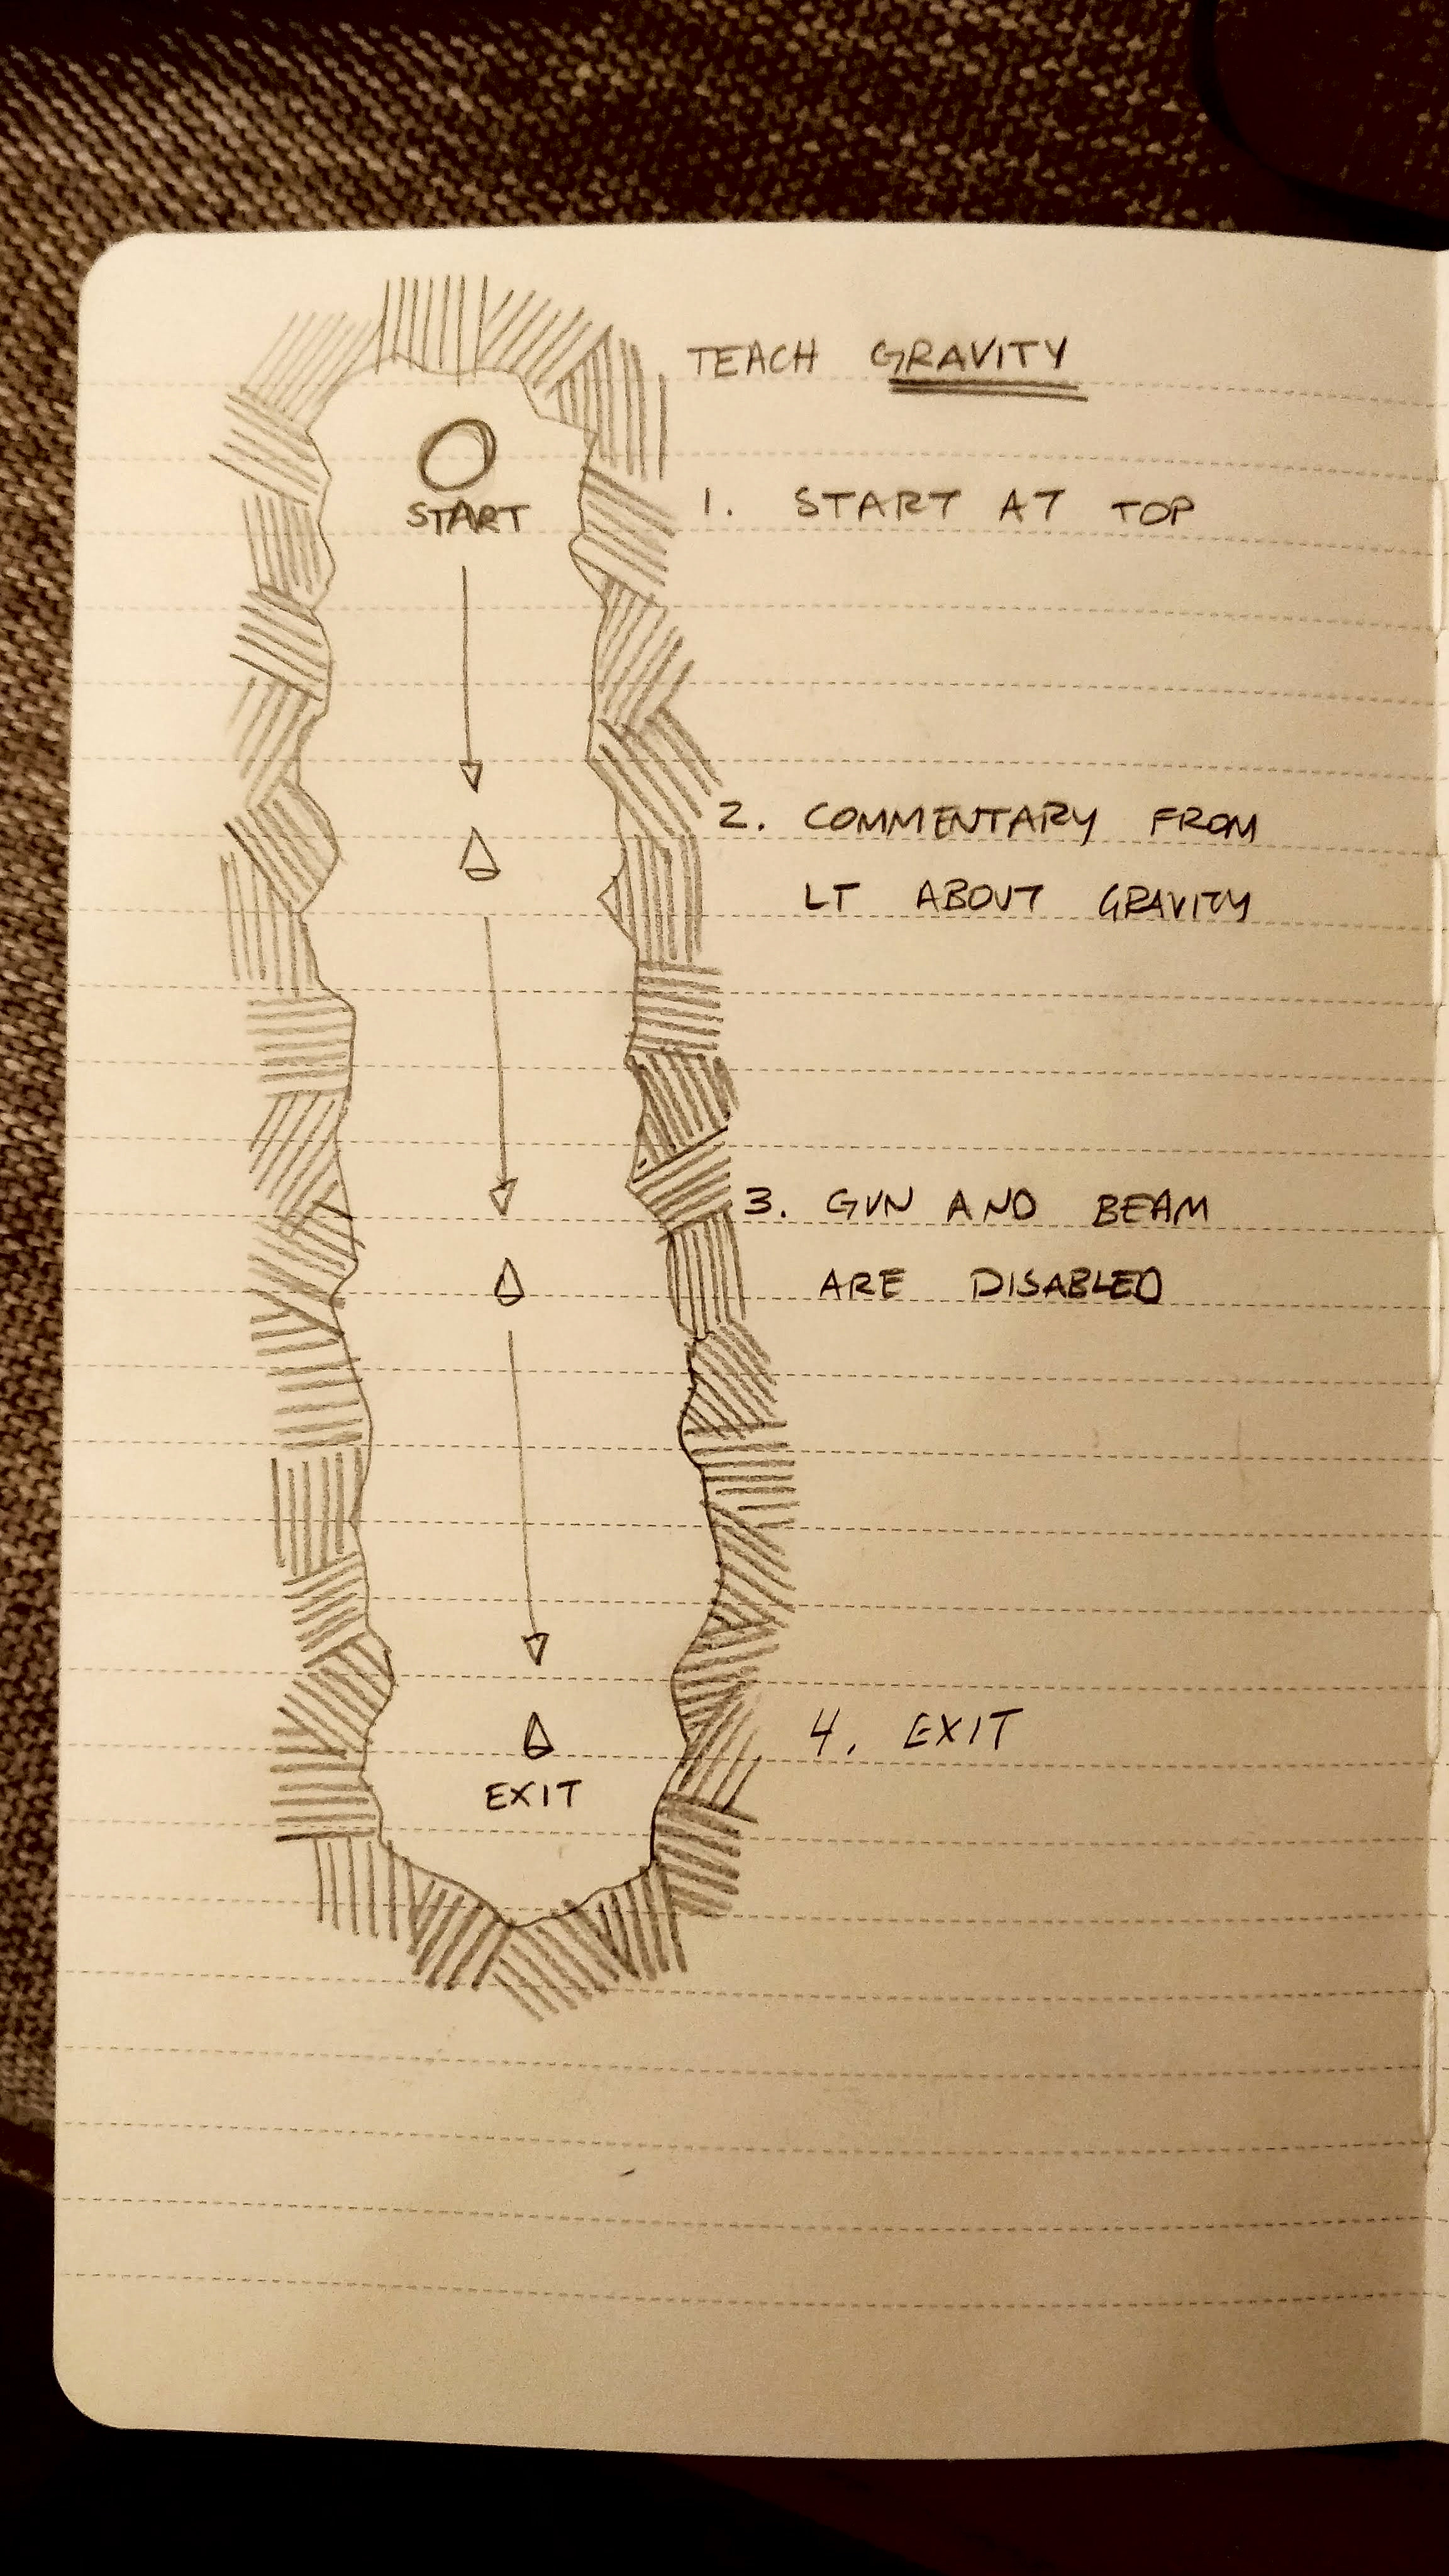 TEACH GRAVITY
START
1. START AT TOP
2. COMMENTARY FROM
LT ABOUT GRAVITY
3. GUN AND BEAM
ARE DISABLED
4. EXIT
EXIT